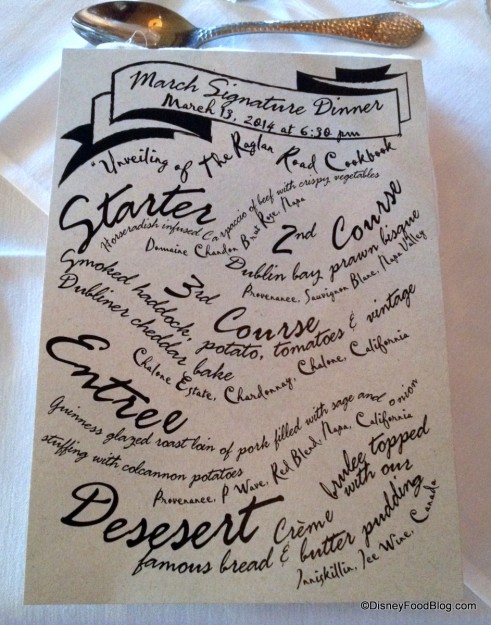 March Signature Dinner
March 13, 2014 at 6:30 pm
"Unveiling of The Raglan Road Cookbook
Starter
Horseradish infused Carpaccio of beef with crispy vegetables
Domaine Chandon Brut Rose, Napa
2nd Course
Dublin bay prawn bisque
Provenance, Sauvignon Blanc, Napa Valley
3rd Course
Smoked haddock, potato, tomatoes & vintage
Dubliner cheddar bake
Chalone Estate, Chardonnay, Chalone, California
Entree
Guinness glazed roast loin of pork filled with sage and onion
stuffing with colcannon potatoes
Provenance, P Wave, Red Blend, Napa, California
Desesert
Crème brulee topped
with our
famous bread & butter pudding
Inniskillin, Ice Wine, Canada
©DisneyFoodBlog.com